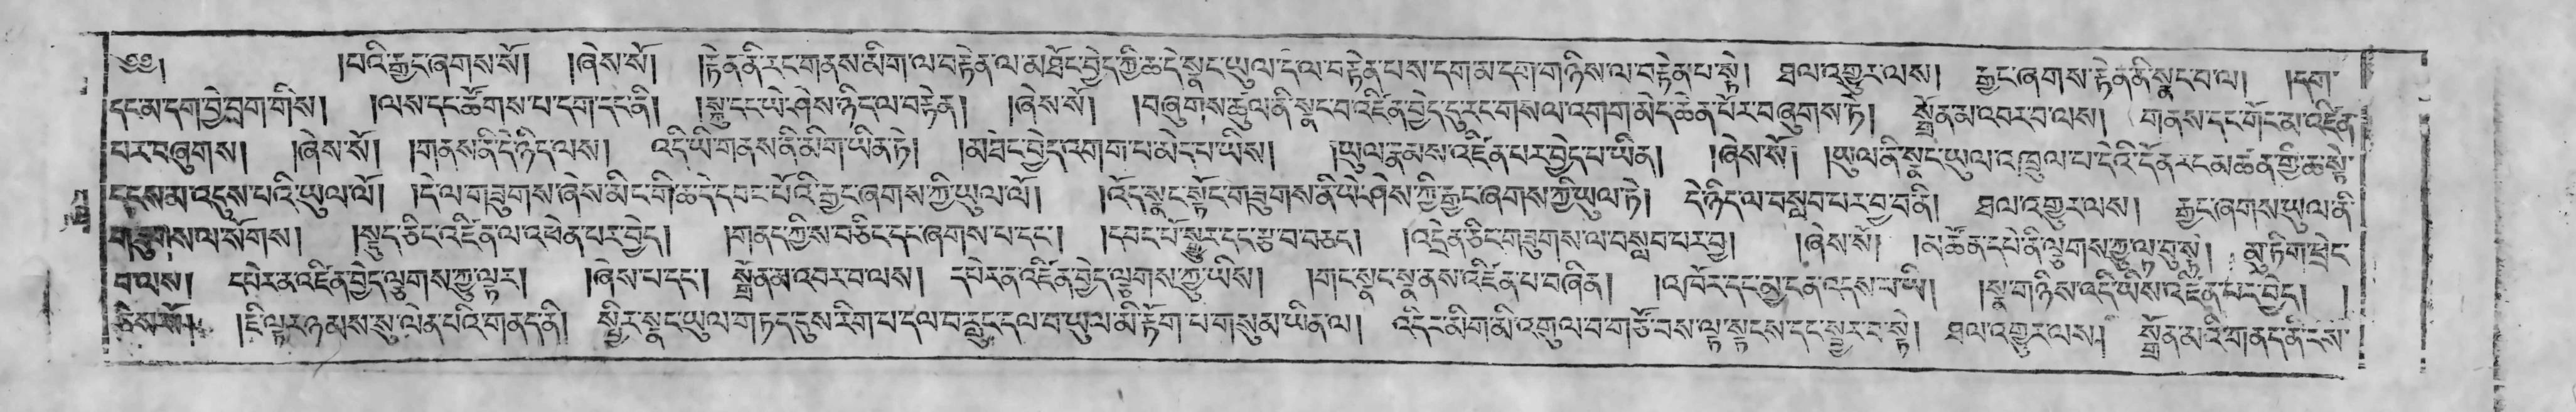 ༄༅། །པའི་རྒྱང་ཞགས་སོ། །ཞེས་སོ། །རྟེན་ནི་རང་གནས་མིག་ལ་བརྟེན་ལ་མཐོང་བྱེད་ཀྱི་ཆ་དེ་སྣང་ཡུལ་དེ་ལ་བརྟེན་པས་དག་མ་དག་གཉིས་ལ་བརྟེན་པ་སྟེ། ཐལ་འགྱུར་ལས། རྒྱང་ཞགས་རྟེན་ནི་སྣང་བ་ལ། །དག་
དང་མ་དག་བྱེ་བྲག་གིས། །ལས་དང་ཚོགས་པ་དག་དང་ནི། །སྐུ་དང་ཡེ་ཤེས་ཉིད་ལ་བརྟེན། །ཞེས་སོ། །བཞུགས་ཚུལ་ནི་སྣང་བ་འཛིན་བྱེད་དུ་རང་གསལ་འགག་མེད་ཆེན་པོར་བཞུགས་ཏེ། སྒྲོན་མ་འབར་བ་ལས། གནས་དང་གོང་མ་འཛིན་
པར་བཞུགས། །ཞེས་སོ། །གནས་ནི་དེ་ཉིད་ལས། འདི་ཡི་གནས་ནི་མིག་ཡིན་ཏེ། །མཐོང་བྱེད་འགག་པ་མེད་པ་ཡིས། །ཡུལ་རྣམས་འཛིན་པར་བྱེད་པ་ཡིན། །ཞེས་སོ། །ཡུལ་ནི་སྣང་ཡུལ་འཁྲུལ་པ་དེའི་དོན་རང་མཚན་གྱི་ཆ་སྟེ་
དྭངས་མ་འདུས་པའི་ཡུལ་ལོ། །དེ་ལ་གཟུགས་ཞེས་མིང་གི་ཆ་དེ་དབང་པོའི་རྒྱང་ཞགས་ཀྱི་ཡུལ་ལོ། །འོད་སྣང་སྟོང་གཟུགས་ནི་ཡེ་ཤེས་ཀྱི་རྒྱང་ཞགས་ཀྱི་ཡུལ་ཏེ། དེ་ཉིད་ལ་བསླབ་པར་བྱ་བ་ནི། ཐལ་འགྱུར་ལས། རྒྱང་ཞགས་ཡུལ་ནི་
གཟུགས་ལ་སོགས། །སྡུད་ཅིང་འཛིན་ལ་འཕེན་པར་བྱེད། །གནད་ཀྱིས་བཅིང་དང་ཞགས་པ་དང་། །དབང་པོ་སྒྱུར་དང་རྩ་བ་བཅད། །འདྲེན་ཅིང་གཟུགས་ལ་བསླབ་པར་བྱ། །ཞེས་སོ། །མཚོན་དཔེ་ནི་ལྕགས་ཀྱུ་ལྟ་བུ་སྟེ། མུ་ཏིག་ཕྲེང་
བ་ལས། དཔེར་ན་འཛིན་བྱེད་ལྕགས་ཀྱུ་ལྟར། །ཞེས་པ་དང་། སྒྲོན་མ་འབར་བ་ལས། དཔེར་ན་འཛིན་བྱེད་ལྕགས་ཀྱུ་ཡིས། །གང་སྣང་སྣ་ནས་འཛིན་པ་བཞིན། །འཁོར་དང་མྱ་ངན་འདས་པ་ཡི། །སྣ་གཉིས་འདི་ཡིས་འཛིན་པར་བྱེད། །
ཅེས་སོ། །ཇི་ལྟར་ཉམས་སུ་ལེན་པའི་གནད་ནི། སྤྱིར་སྣང་ཡུལ་གཏད་དུས་རིག་པ་དལ་བ་རླུང་དལ་བ་ཡུལ་མི་རྟོག་པ་གསུམ་ཡིན་ལ། འདིར་མིག་མི་འགུལ་བ་གཙོ་བས་ལྟ་སྟངས་དང་སྦྱར་བ་སྟེ། ཐལ་འགྱུར་ལས། སྒྲོན་མའི་གནད་ནི་ངེས་